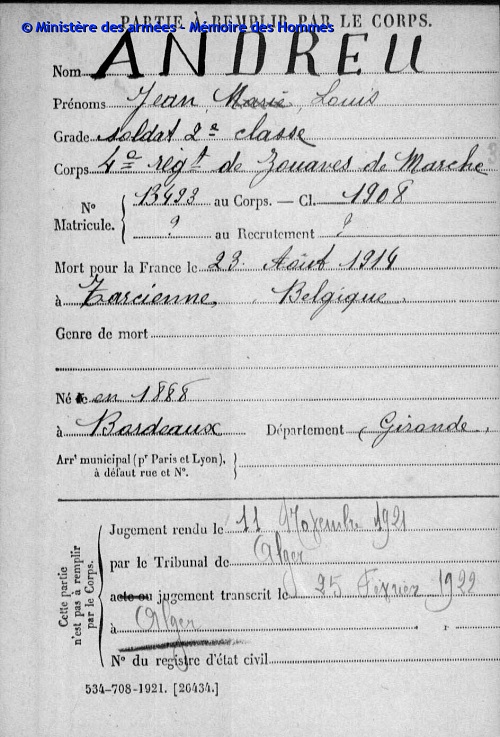 PARTIE À REMPLIR PAR LE CORPS.
© Ministère des armées - Mémoire des Hommes
Nom ANDREU
Prénoms Jean, Marie, Louis
Grade soldat 2e classe
Corps 4e regt de Zouaves de Marche
No Matricule. 13493 au Corps. — Cl. 1908
? au Recrutement ?
Mort pour la France le 23 Août 1914
à Tarcienne, Belgique.
Genre de mort
Né le en 1888
à Bordeaux Département Gironde,
Arrt municipal (pr Paris et Lyon),
à défaut rue et No.
Cette partie n'est pas à remplir par le Corps.
Jugement rendu le 11 Novembre 1921
par le Tribunal de Alger
acte ou jugement transcrit le 25 Février 1922
à Alger
No du registre d'état civil
534-708-1921. [26434.]